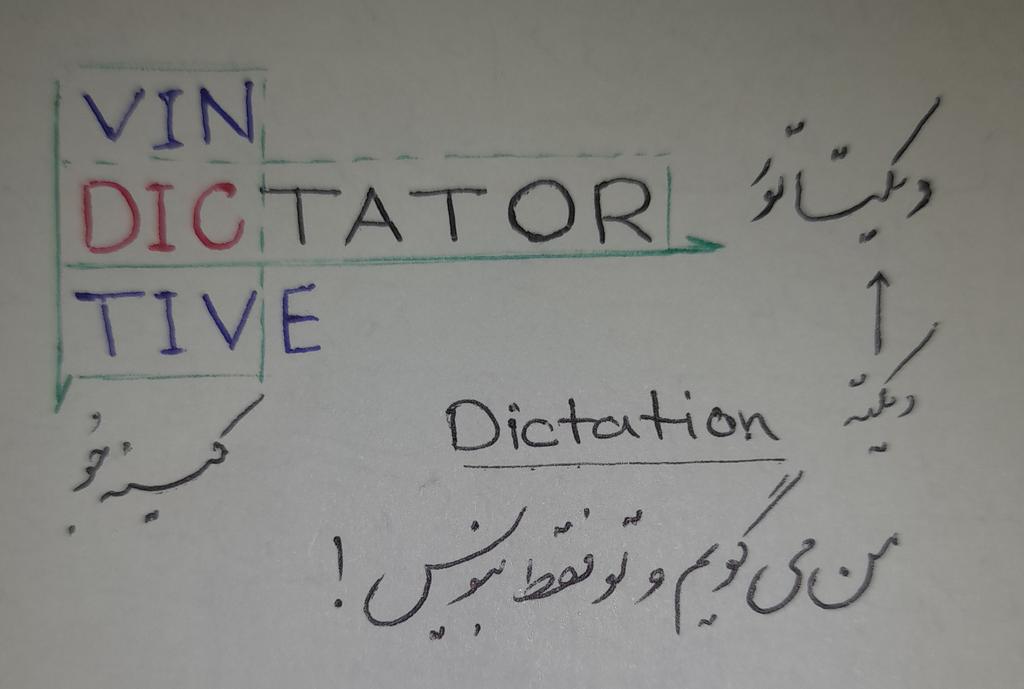 VIN
DICTATOR
دیکتاتور
TIVE
دیکته
کینه جو
Dictation
من می گویم و تو فقط بنویس!